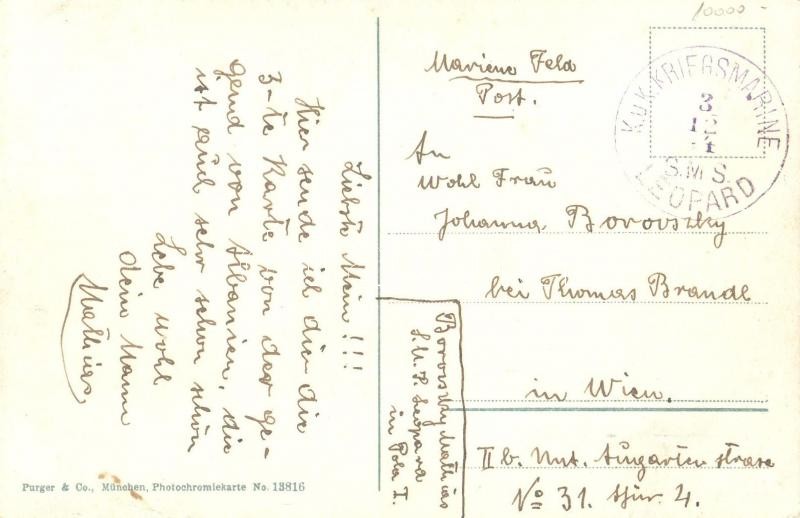 10000-
K.u.K. KRIEGSMARINE
3
12
S.M.S.
LEOPARD
Mariene Feld
Post.
An
Wohl Frau
Johanna Borovszky
bei Thomas Brandl
in Wien.
II b. Unt. Augarten strase
No 31. thür. 4.
Liebste Mein!!!
Hier sende ich dir die
3-te Karte von der ge-
gend von Albanien, die
ist auch sehr schön schön
Lebe wohl
dein Mann
Mathias
Borovszky Mathias
S.M.S. Leopard
in Pola I.
Purger & Co., München, Photochromiekarte No. 13816